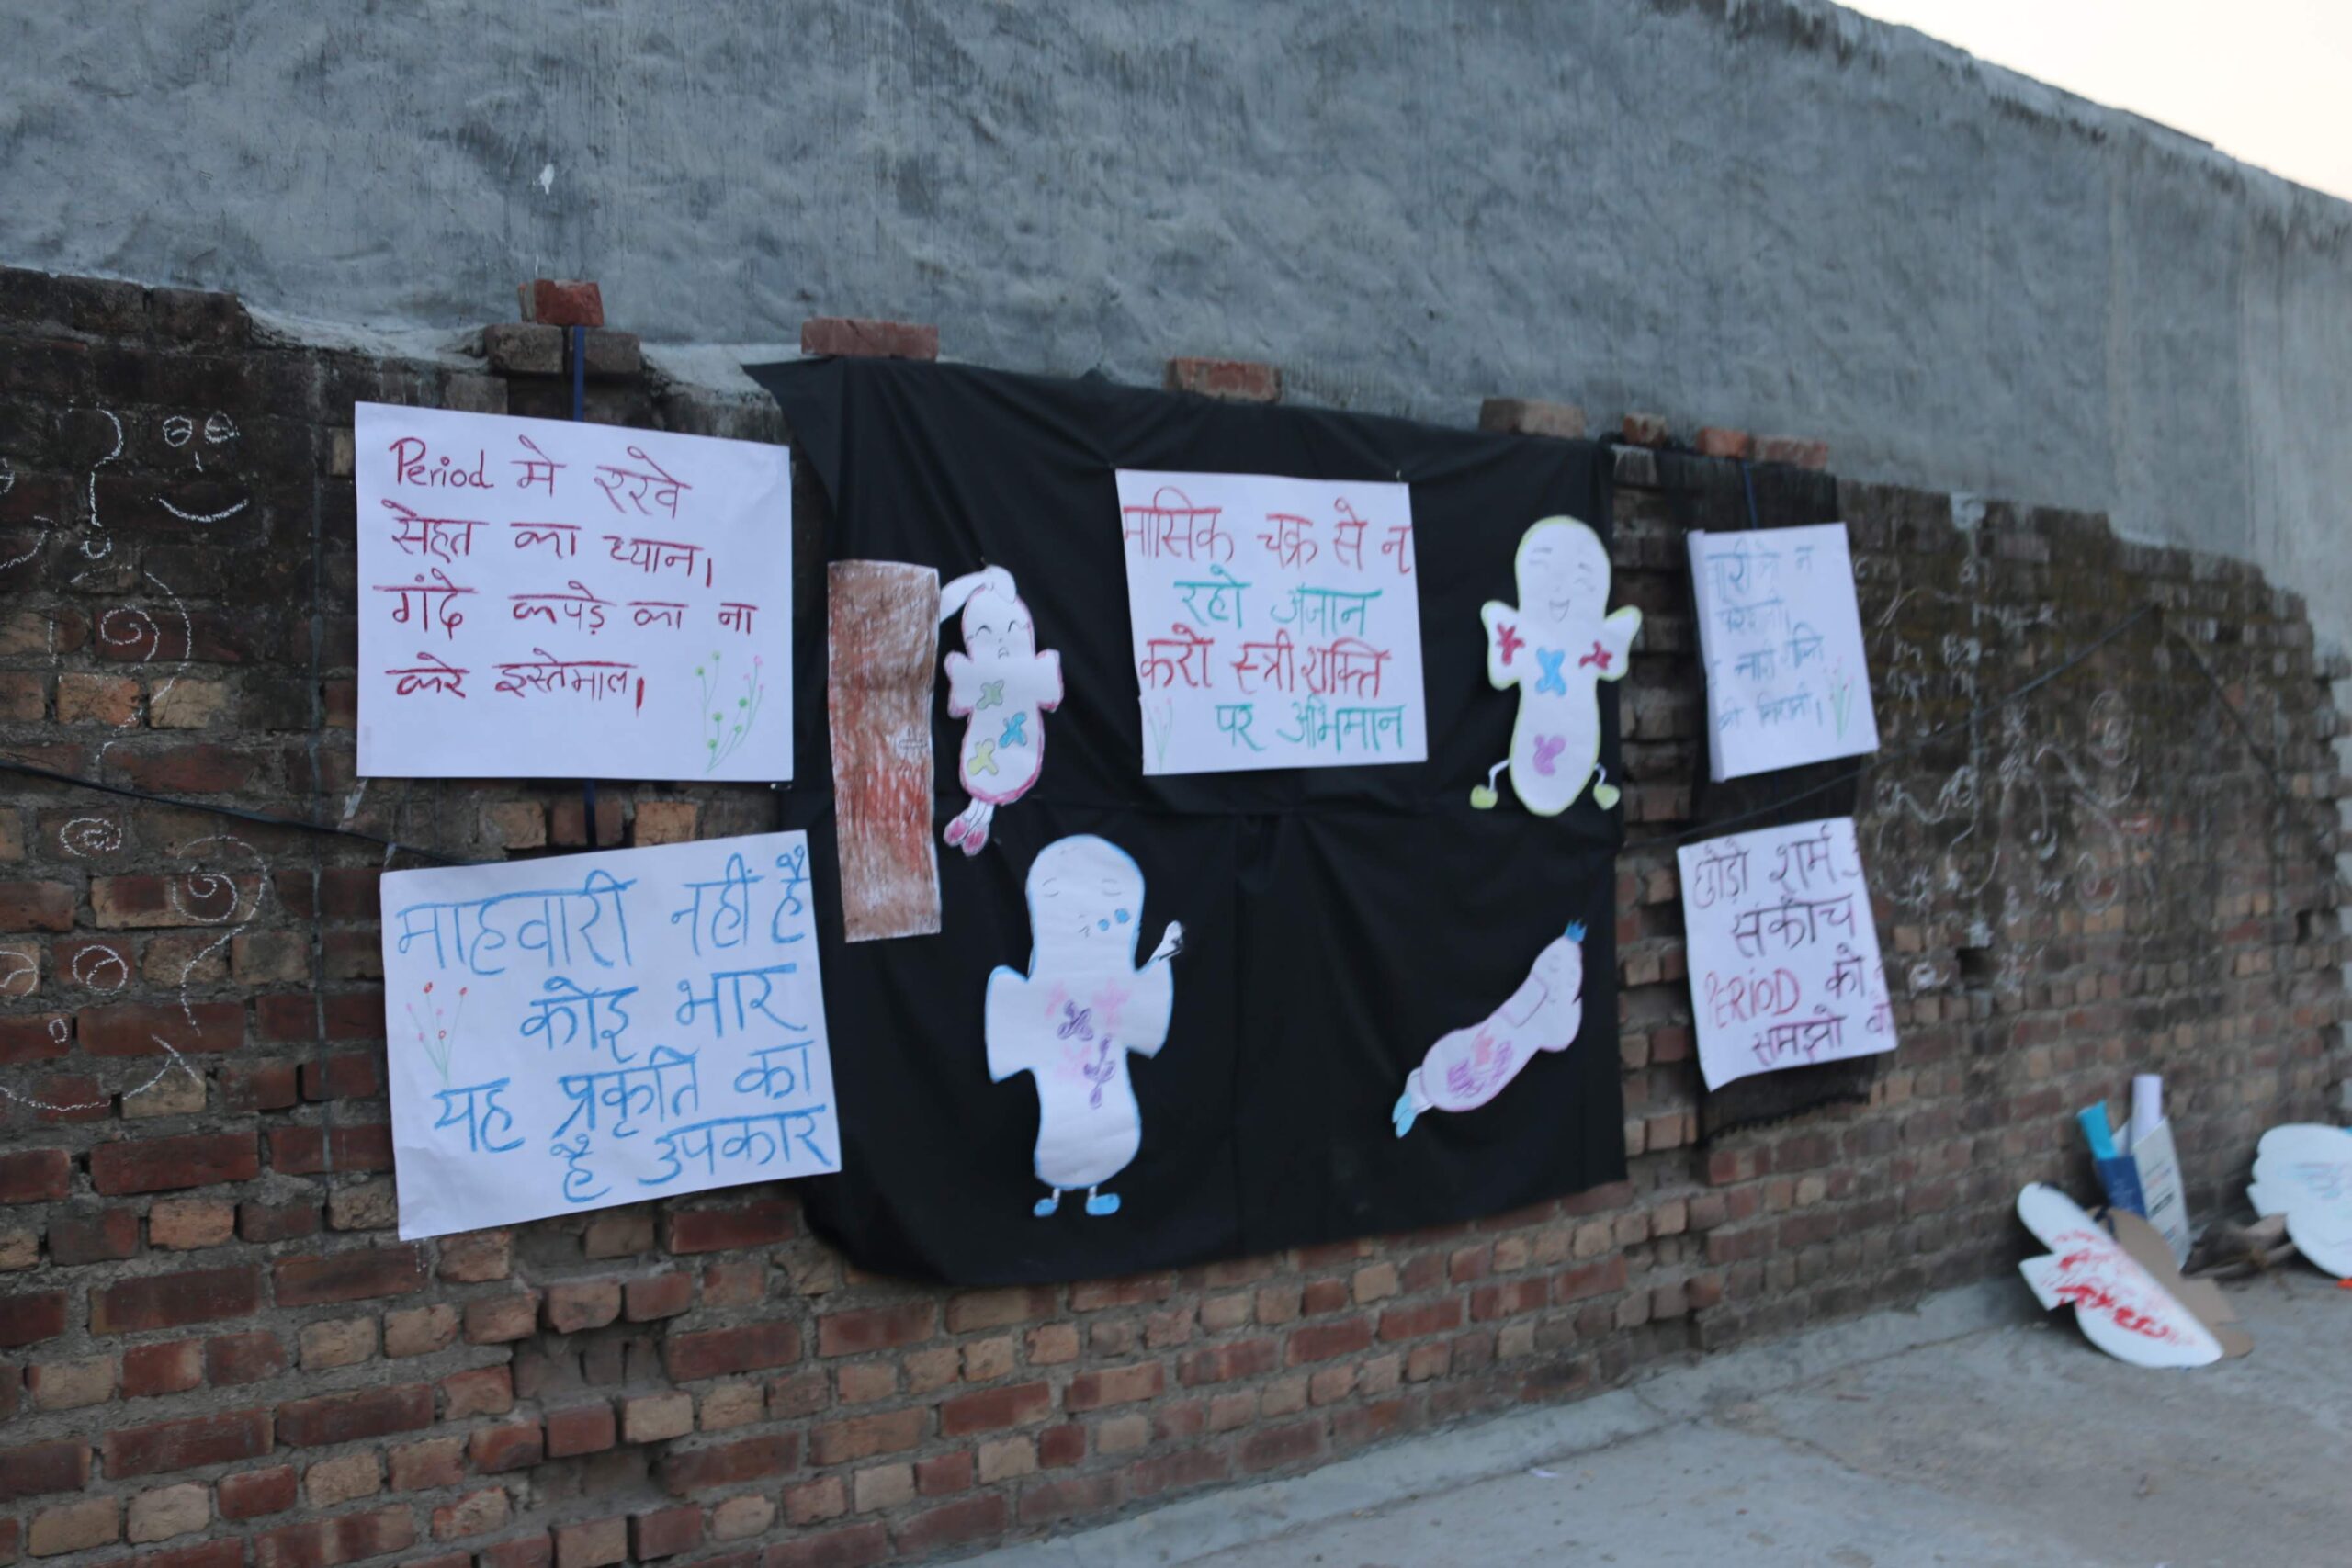 Period मे रखे
सेहत का ध्यान।
गंदे कपड़े का ना
करे इस्तेमाल।
माहवारी नहीं है
कोइ भार
यह प्रकृति का
है उपकार
मासिक चक्र से न
रहो अंजान
करो स्त्री शक्ति
पर अभिमान
न
छोड़ो शर्म
संकोच
PERIOD को
समझो